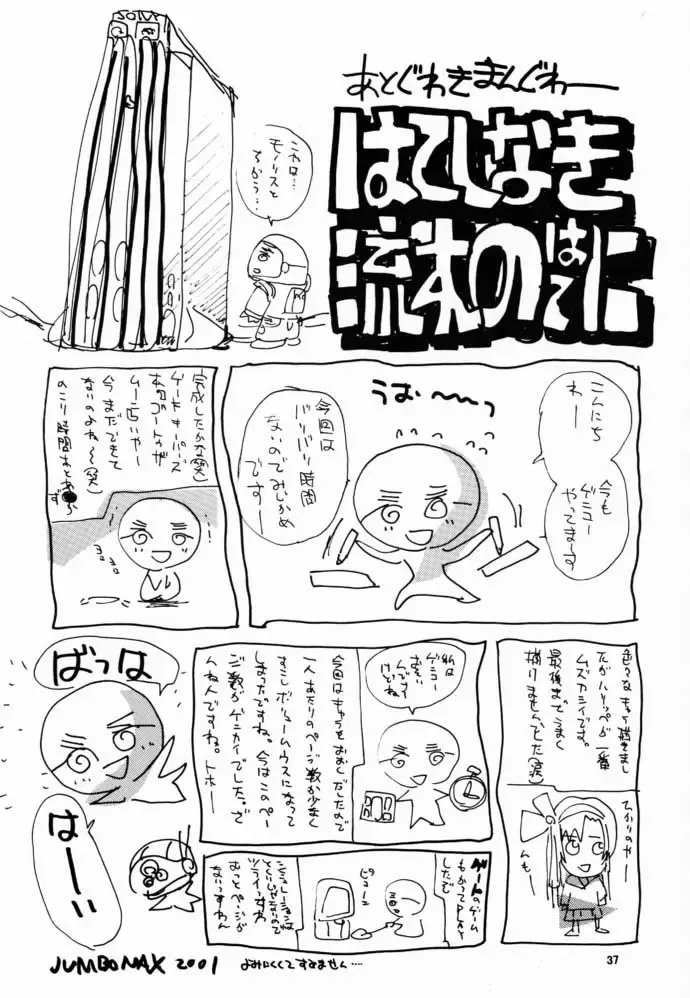 あとぐわきまんぐわー
はてしなき
流木のはてに
これは…
モノリスと
ちがう…
こんにち
わー
今も
ゲミュー
やってまーす
うお〜〜っ
今回は
バリバリ時間
ないのでみじかめ
でーすー
完成したかな(笑)
ゲートキーパーズ
今まだできて
ないのよね〜(笑)
のこり時間あと
ヨロ
ヨロ
色々なキャラ描きまし
たがハリッペが一番
ムズカシイです。
最後までうまく
描けませんでした(涙)
んもー
私は
ゲミュー
今回はキャラをおおくだしたので
一人あたりのページ数が少なく
すこしボリュームウスになって
しまったですね。今はこのペー
ジ数がゲンカイでした。で
んねんですね。トホー
ばっは
はーい
ゲートのゲーム
もかってPLAY
したで
ピューン
シミュレーションは
ツライっすね
もっとページが
ないっすわん
JUMBOMAX 2001
よみにくくてすみません....
37